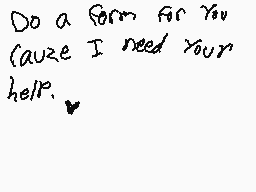 Do a form for you
Cauze I need your
help.